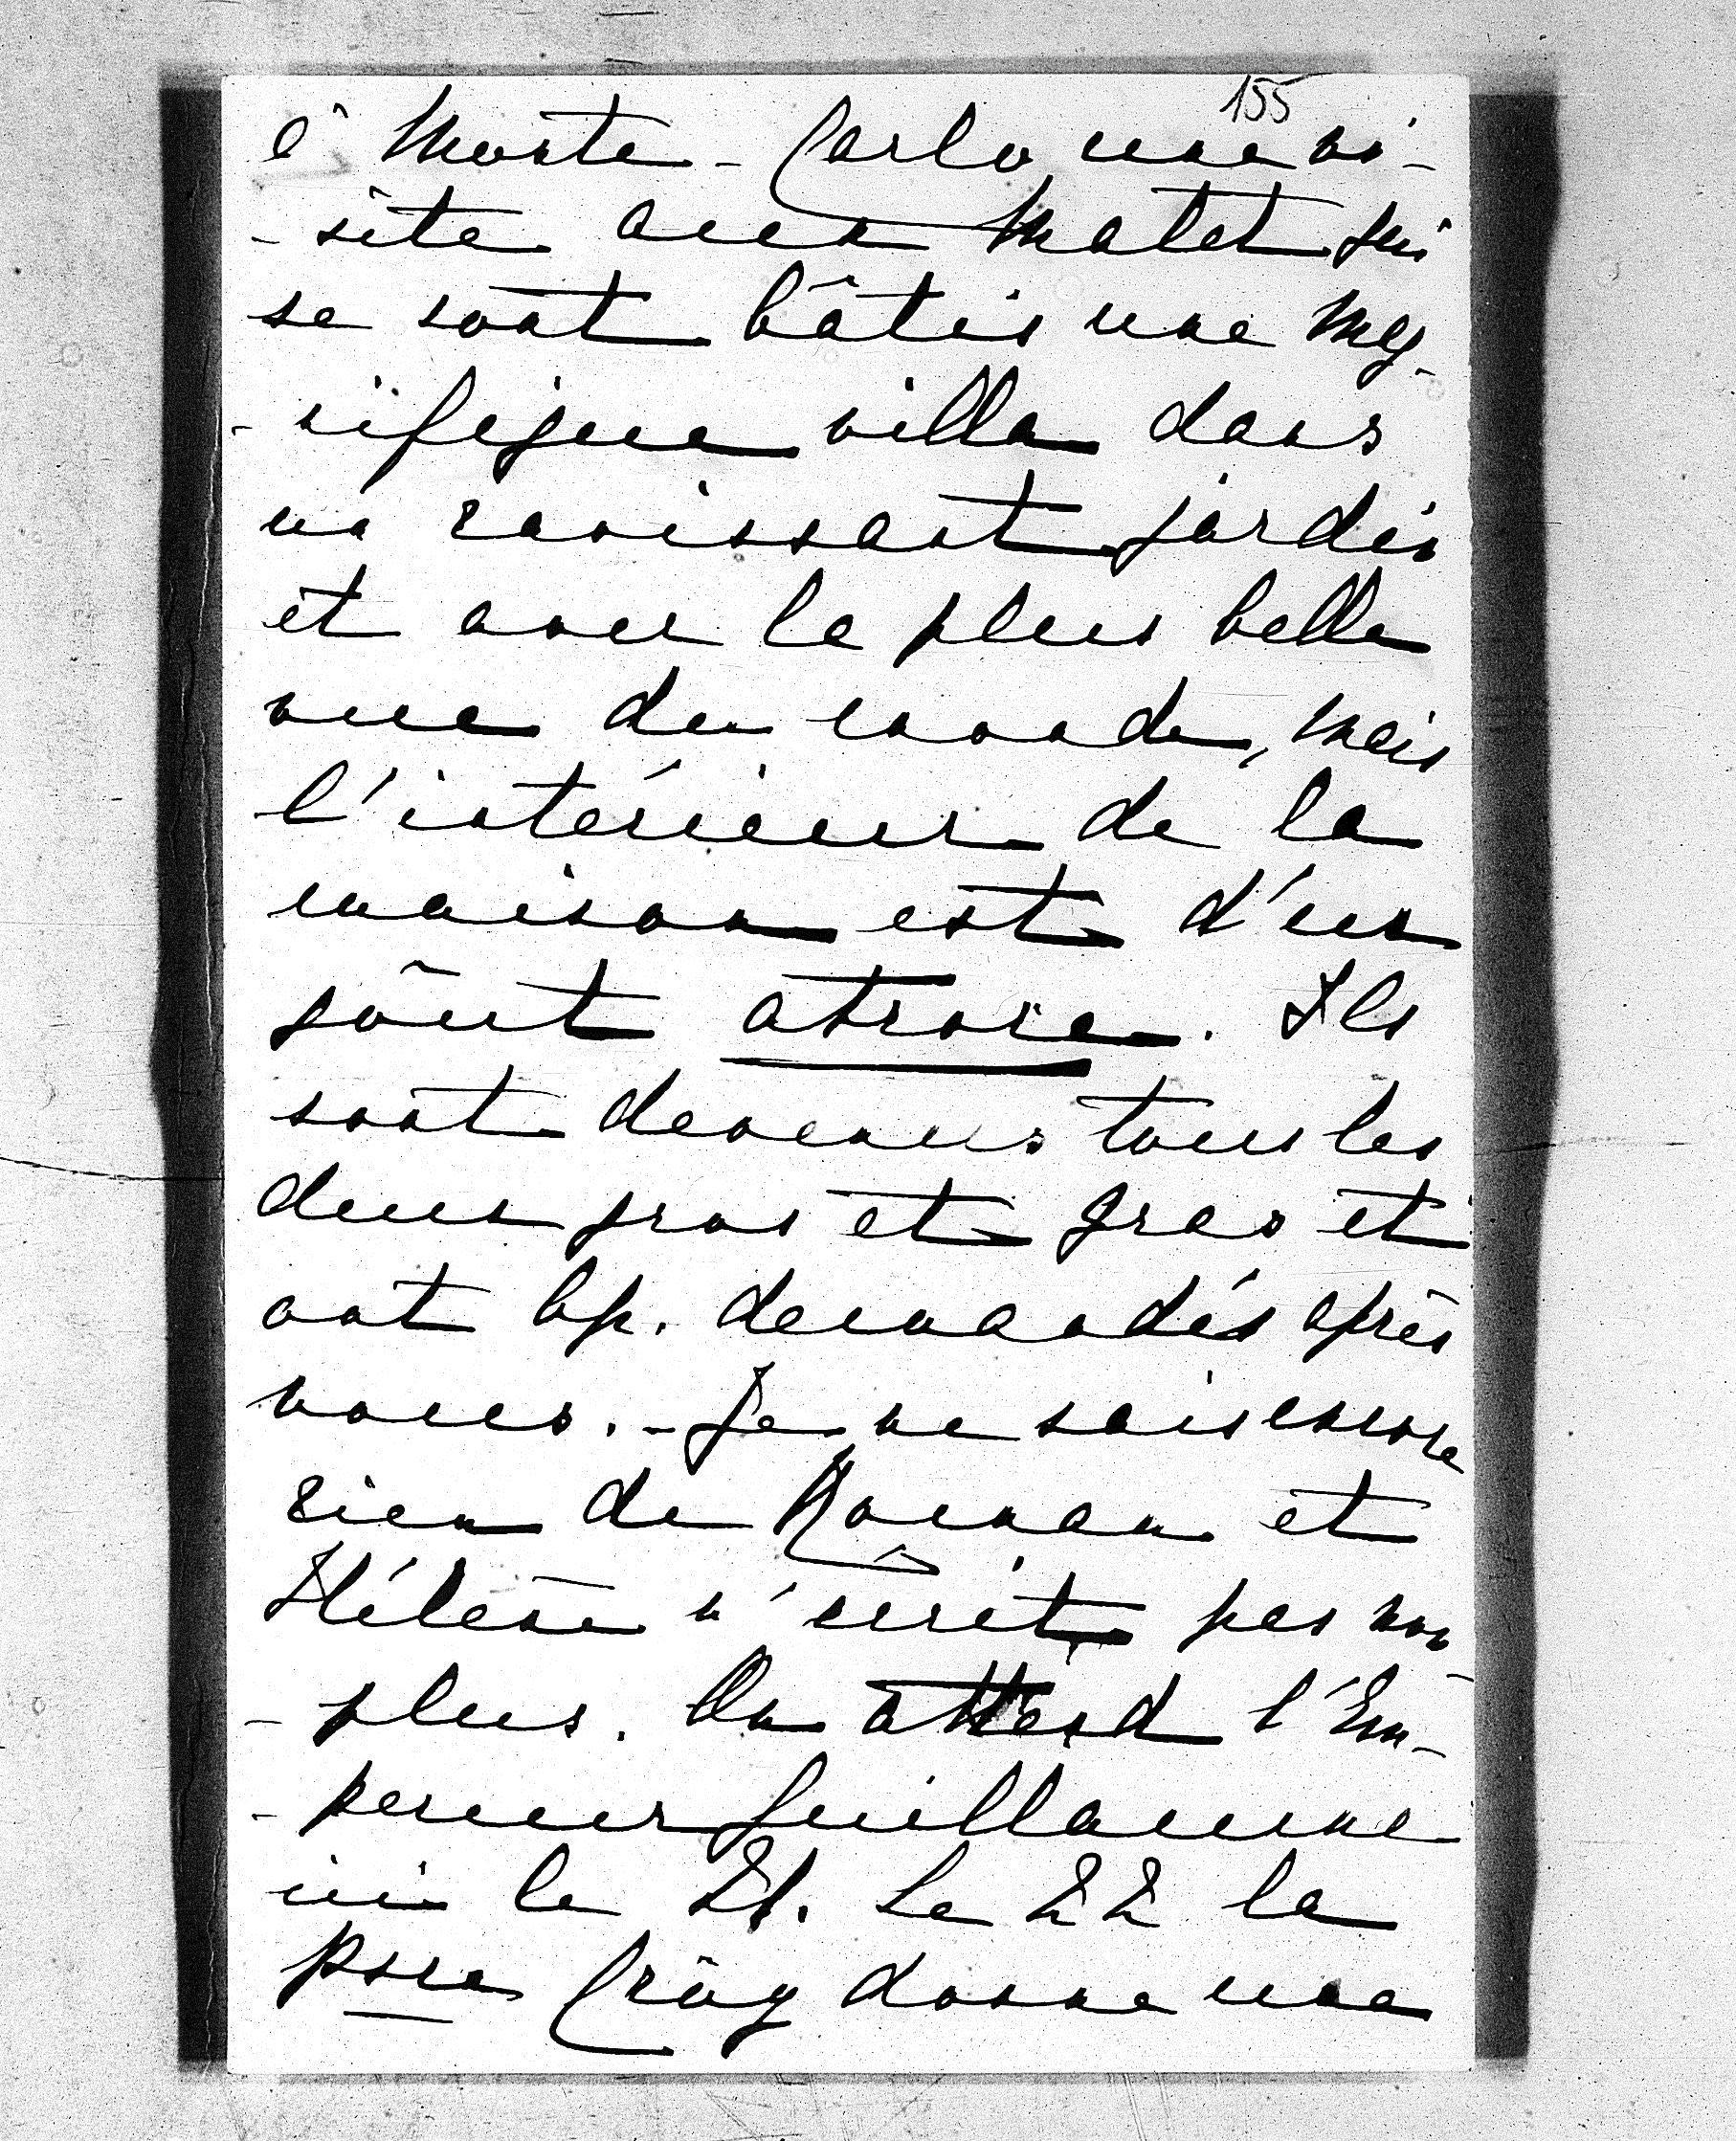 155
à Monte-Carlo, une vi-
-site aux Malet qui
se sont bâtis une mag-
-nifique villa dans
un ravissant jardin
et avec la plus belle
vue du monde, mais
l'intérieur de la
maison est d'un
goût atroce. Ils
sont devenus tous les
deux gros et gras et
ont bp. demandés après
vous. - Je ne sais encore
rien de Roman et
Hélène n'écrit pas non
-plus. On attend l'Em-
-pereur Guillaume
ici le 21. Le 22 la
Psse Croÿ donne une